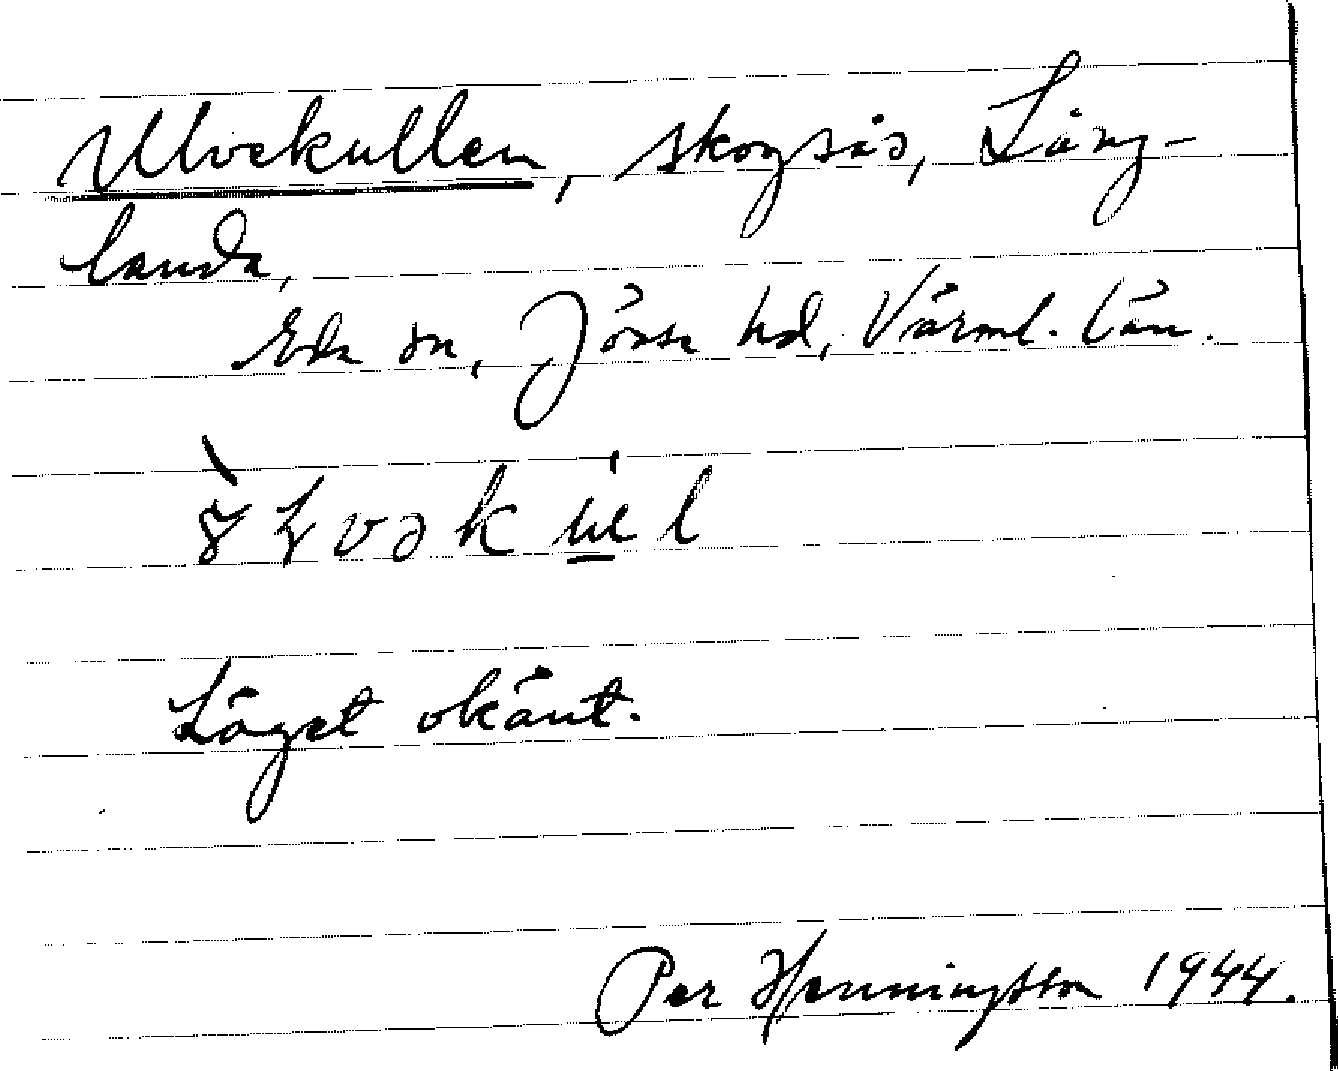 Ulvekullen, skogsås, Lång-
landa,
Eda sn, Jösse hd, Värml. län.
Läget okänt.
Per Henningsson 1944.